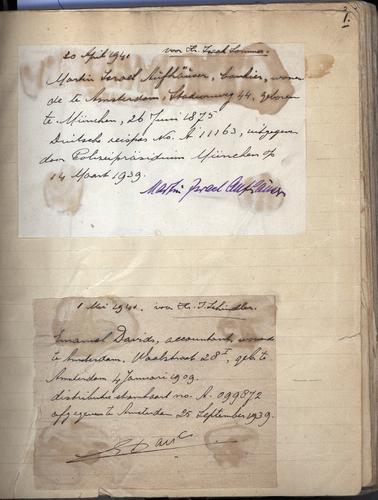 1.
20 April 1941 voor Hr. Izaak
Martin Israel Aufhäuser, bankier, wonen
de te Amsterdam, Stadionweg 44, geboren
te München, 26 Juni 1875
Duitsche reispas No. A 11163, uitgegeven
door Polizeipräsidium München op
14 Maart 1939.
Martin Israel Aufhäuser
1 Mei 1941. voor Hr. J. Schindler.
Emanuel Davids, accountant, wonende
te Amsterdam, Waalstraat 28 I, geb. te
Amsterdam 4 Januari 1909.
distributie stamkaart no. A. 099872
afgegeven te Amsterdam 25 September 1939.